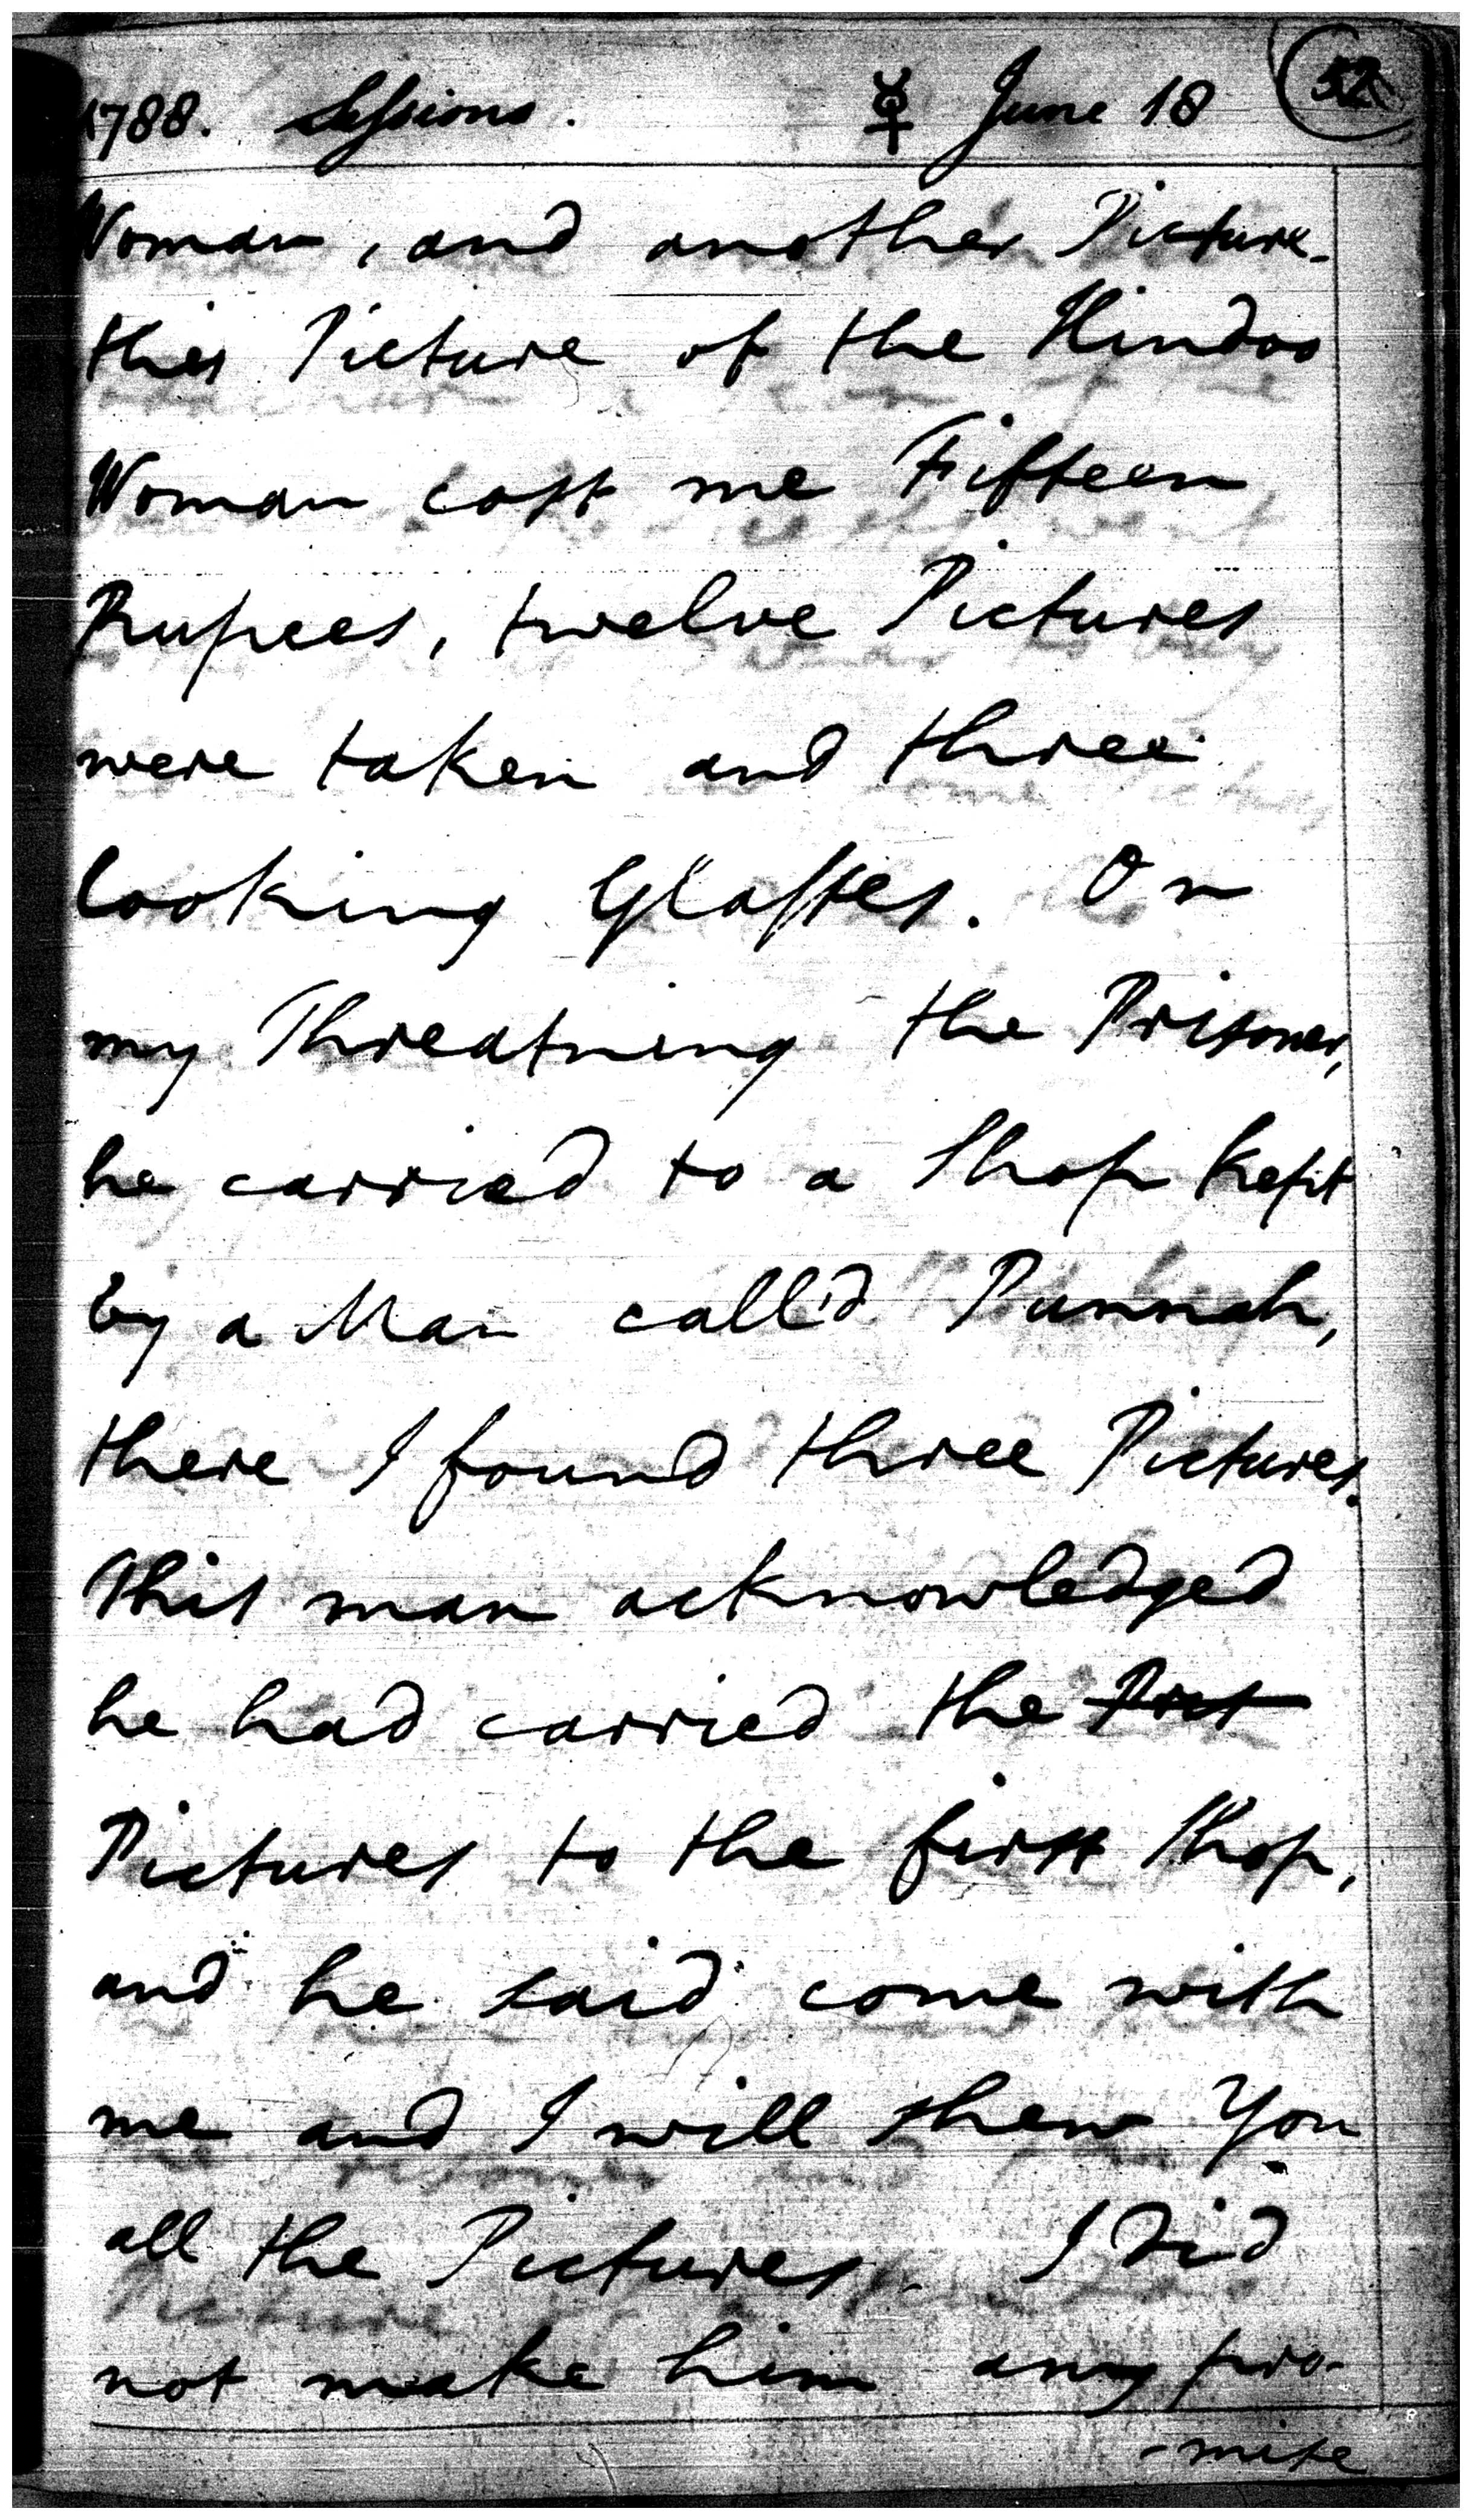 1788. Sessions. ☿ June 18 52
Woman, and another Picture-
this Picture of the Hindoo
Woman cost me Fifteen
Rupees, twelve Pictures
were taken and three
looking Glasses. On
my Threatning the Prisoner,
he carried to a Shop kept
by a Man call'd Punnah,
there I found three Pictures.
This man acknowledged
he had carried the Pict
Pictures to the first Shop,
and he said come with
me and I will shew You
all the Pictures. I did
not make him any pro-
-mise